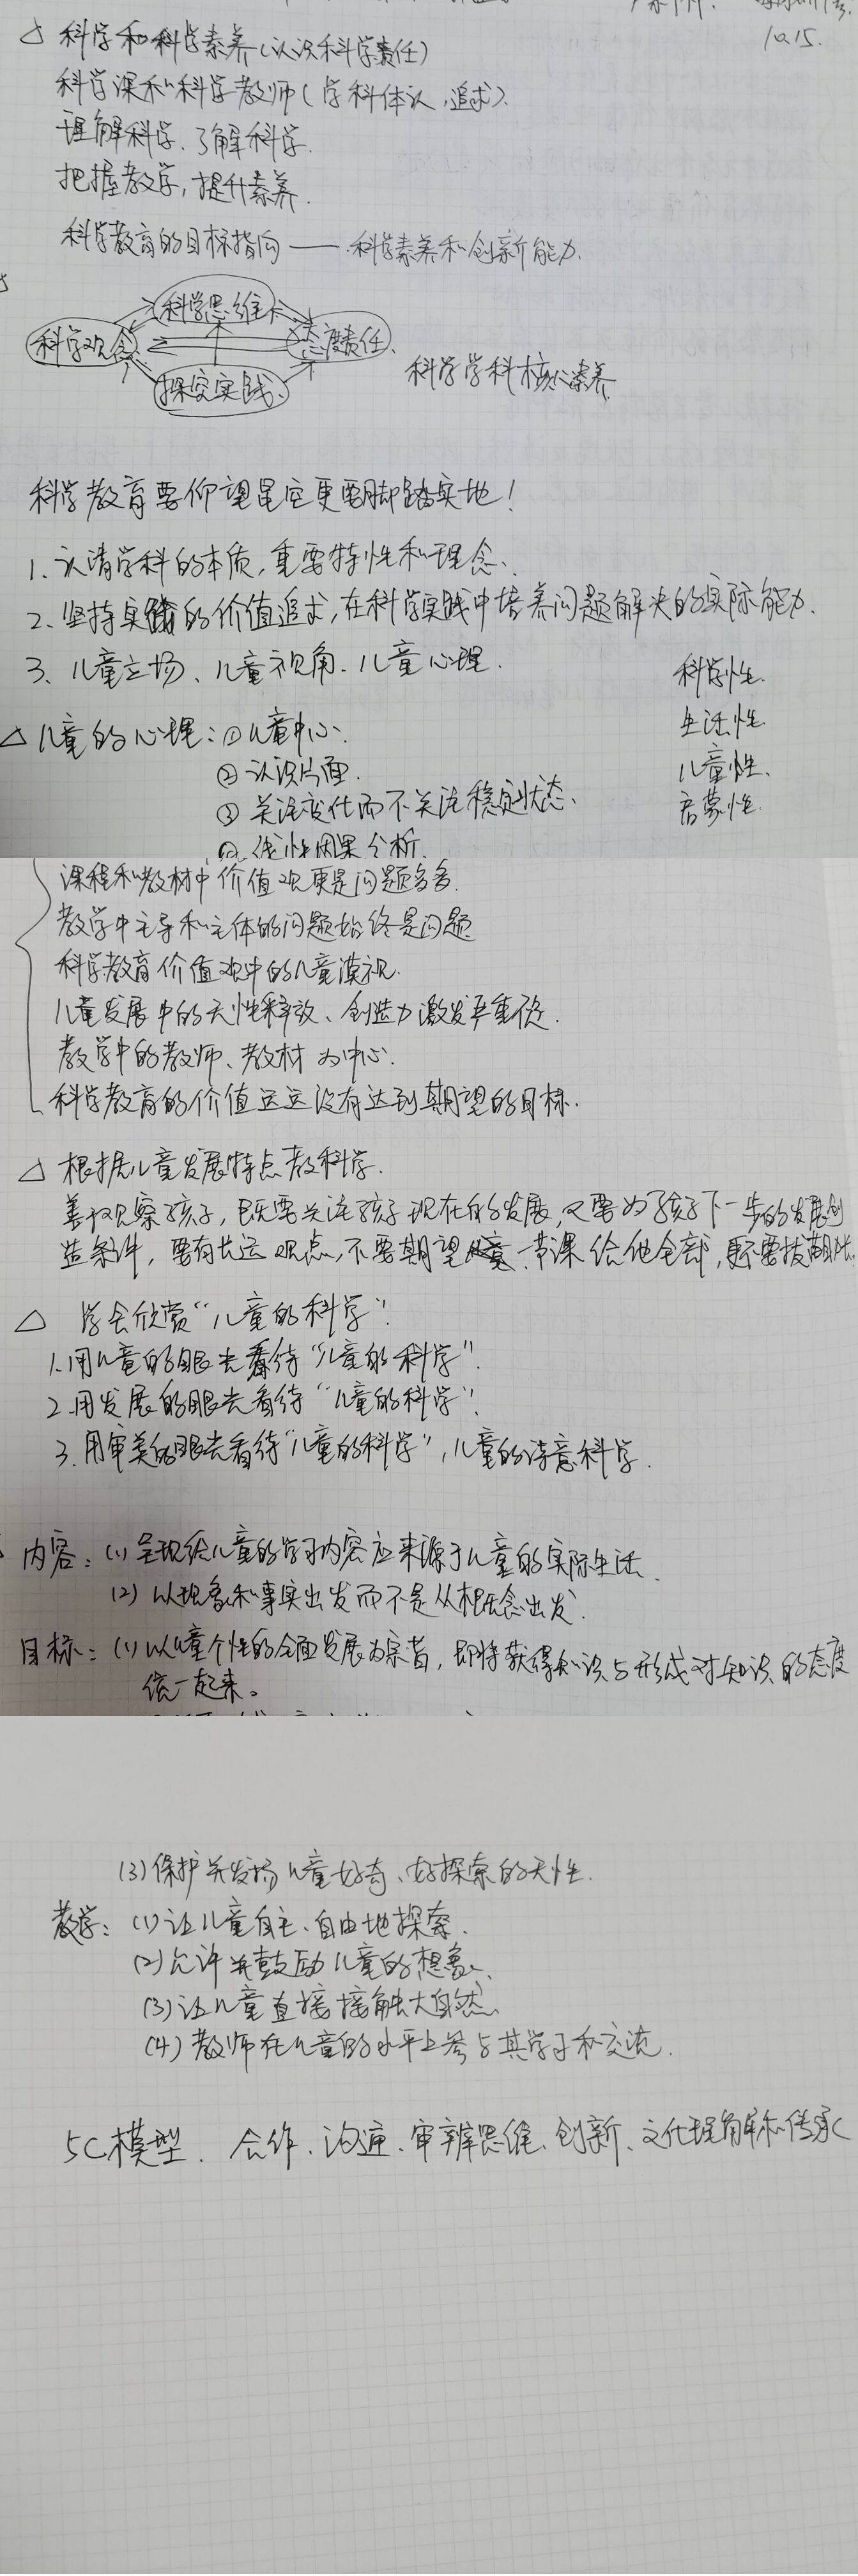 10.15.
△ 科学和科学素养(认识科学责任)
科学课和科学教师(学科体认,追求).
理解科学、了解科学.
把握教学,提升素养.
科学教育的目标指向——科学素养和创新能力.
科学思维
科学观念
态度责任
探究实践
科学学科核心素养
科学教育要仰望星空更要脚踏实地!
1、认清学科的本质,重要特性和理念、
2、坚持实践的价值追求,在科学实践中培养问题解决的实际能力.
3、儿童立场、儿童视角、儿童心理.
科学性.
生活性.
儿童性、
启蒙性.
△ 儿童的心理:①儿童中心、
②认识片面.
③关注变化而不关注稳定状态、
④线性因果分析.
课程和教材中价值观更是问题多多.
教学中主导和主体的问题始终是问题
科学教育价值观中的儿童漠视.
儿童发展中的天性释放、创造力激发严重
教学中的教师、教材为中心.
科学教育的价值远远没有达到期望的目标.
△ 根据儿童发展特点教科学.
善观察孩子,既要关注孩子现在的发展,又要为孩子下一步的发展创
造条件,要有长远观点,不要期望一节课给他全部,更不要拔苗助长
△ 学会欣赏“儿童的科学”.
1.用儿童的眼去看待“儿童的科学”.
2.用发展的眼去看待“儿童的科学”.
3.用审美的眼去看待“儿童的科学”,儿童的诗意科学.
内容:(1)呈现给儿童的学习内容应来源于儿童的实际生活、
(2)以现象和事实出发而不是从概念出发.
目标:(1)以儿童个性的全面发展为宗旨,即将获得知识与形成对知识的态度
统一起来。
(3)保护并发扬儿童好奇、好探索的天性.
教学:(1)让儿童自主、自由地探索.
(2)允许并鼓励儿童的想象、
(3)让儿童直接接触大自然、
(4)教师在儿童的水平上参与其学习和交流.
5C模型.合作、沟通、审辨思维、创新、文化理解和传承